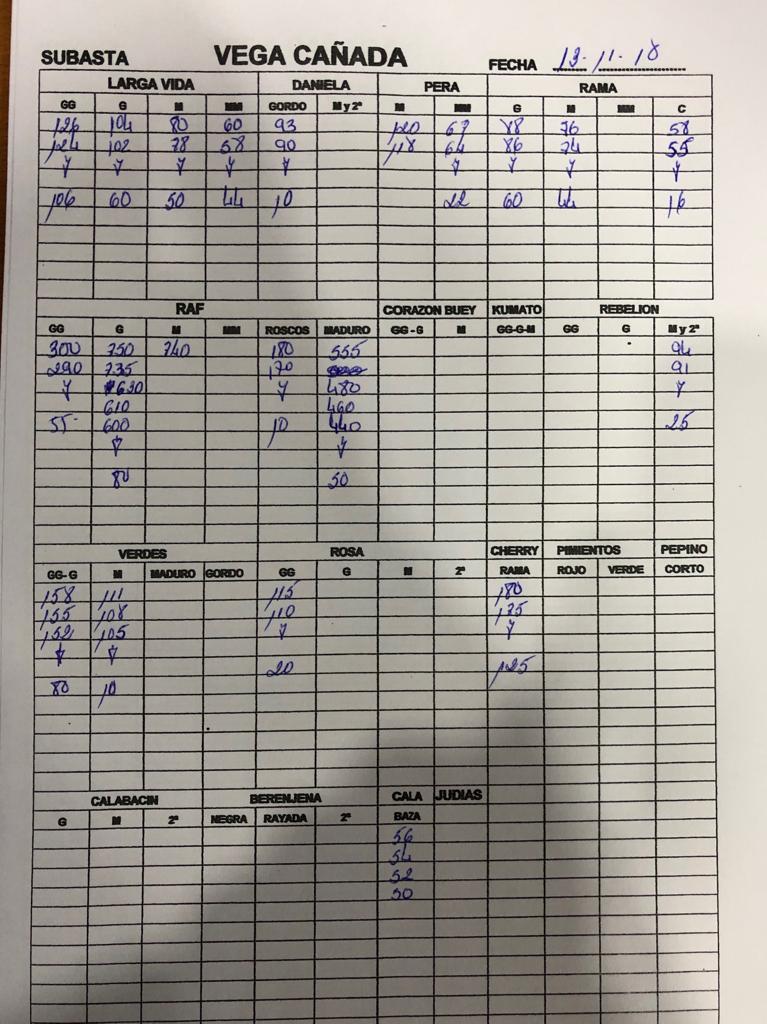 SUBASTA VEGA CAÑADA FECHA 13-11-18
LARGA VIDA DANIELA PERA RAMA
GG G M MM GORDO M y 2ª M MM G M MM C
126 104 80 60 93 120 67 88 76 58
124 102 78 58 90 118 64 86 74 55
y y y y y y y y y
106 60 50 44 10 22 60 44 16
RAF CORAZON BUEY KUMATO REBELION
GG G M MM ROSCOS MADURO GG-G M GG-G-M GG G M y 2ª
300 750 740 180 555 94
290 735 170 91
y 620 y 480 y
610 460
55 600 10 440 25
y y
80 50
VERDES ROSA CHERRY PIMIENTOS PEPINO
GG-G M MADURO GORDO GG G M 2ª RAMA ROJO VERDE CORTO
158 111 115 180
155 108 110 175
152 105 y y
y y
20 125
80 10
CALABACIN BERENJENA CALA JUDIAS
G M 2ª NEGRA RAYADA 2ª BAZA
56
54
52
50